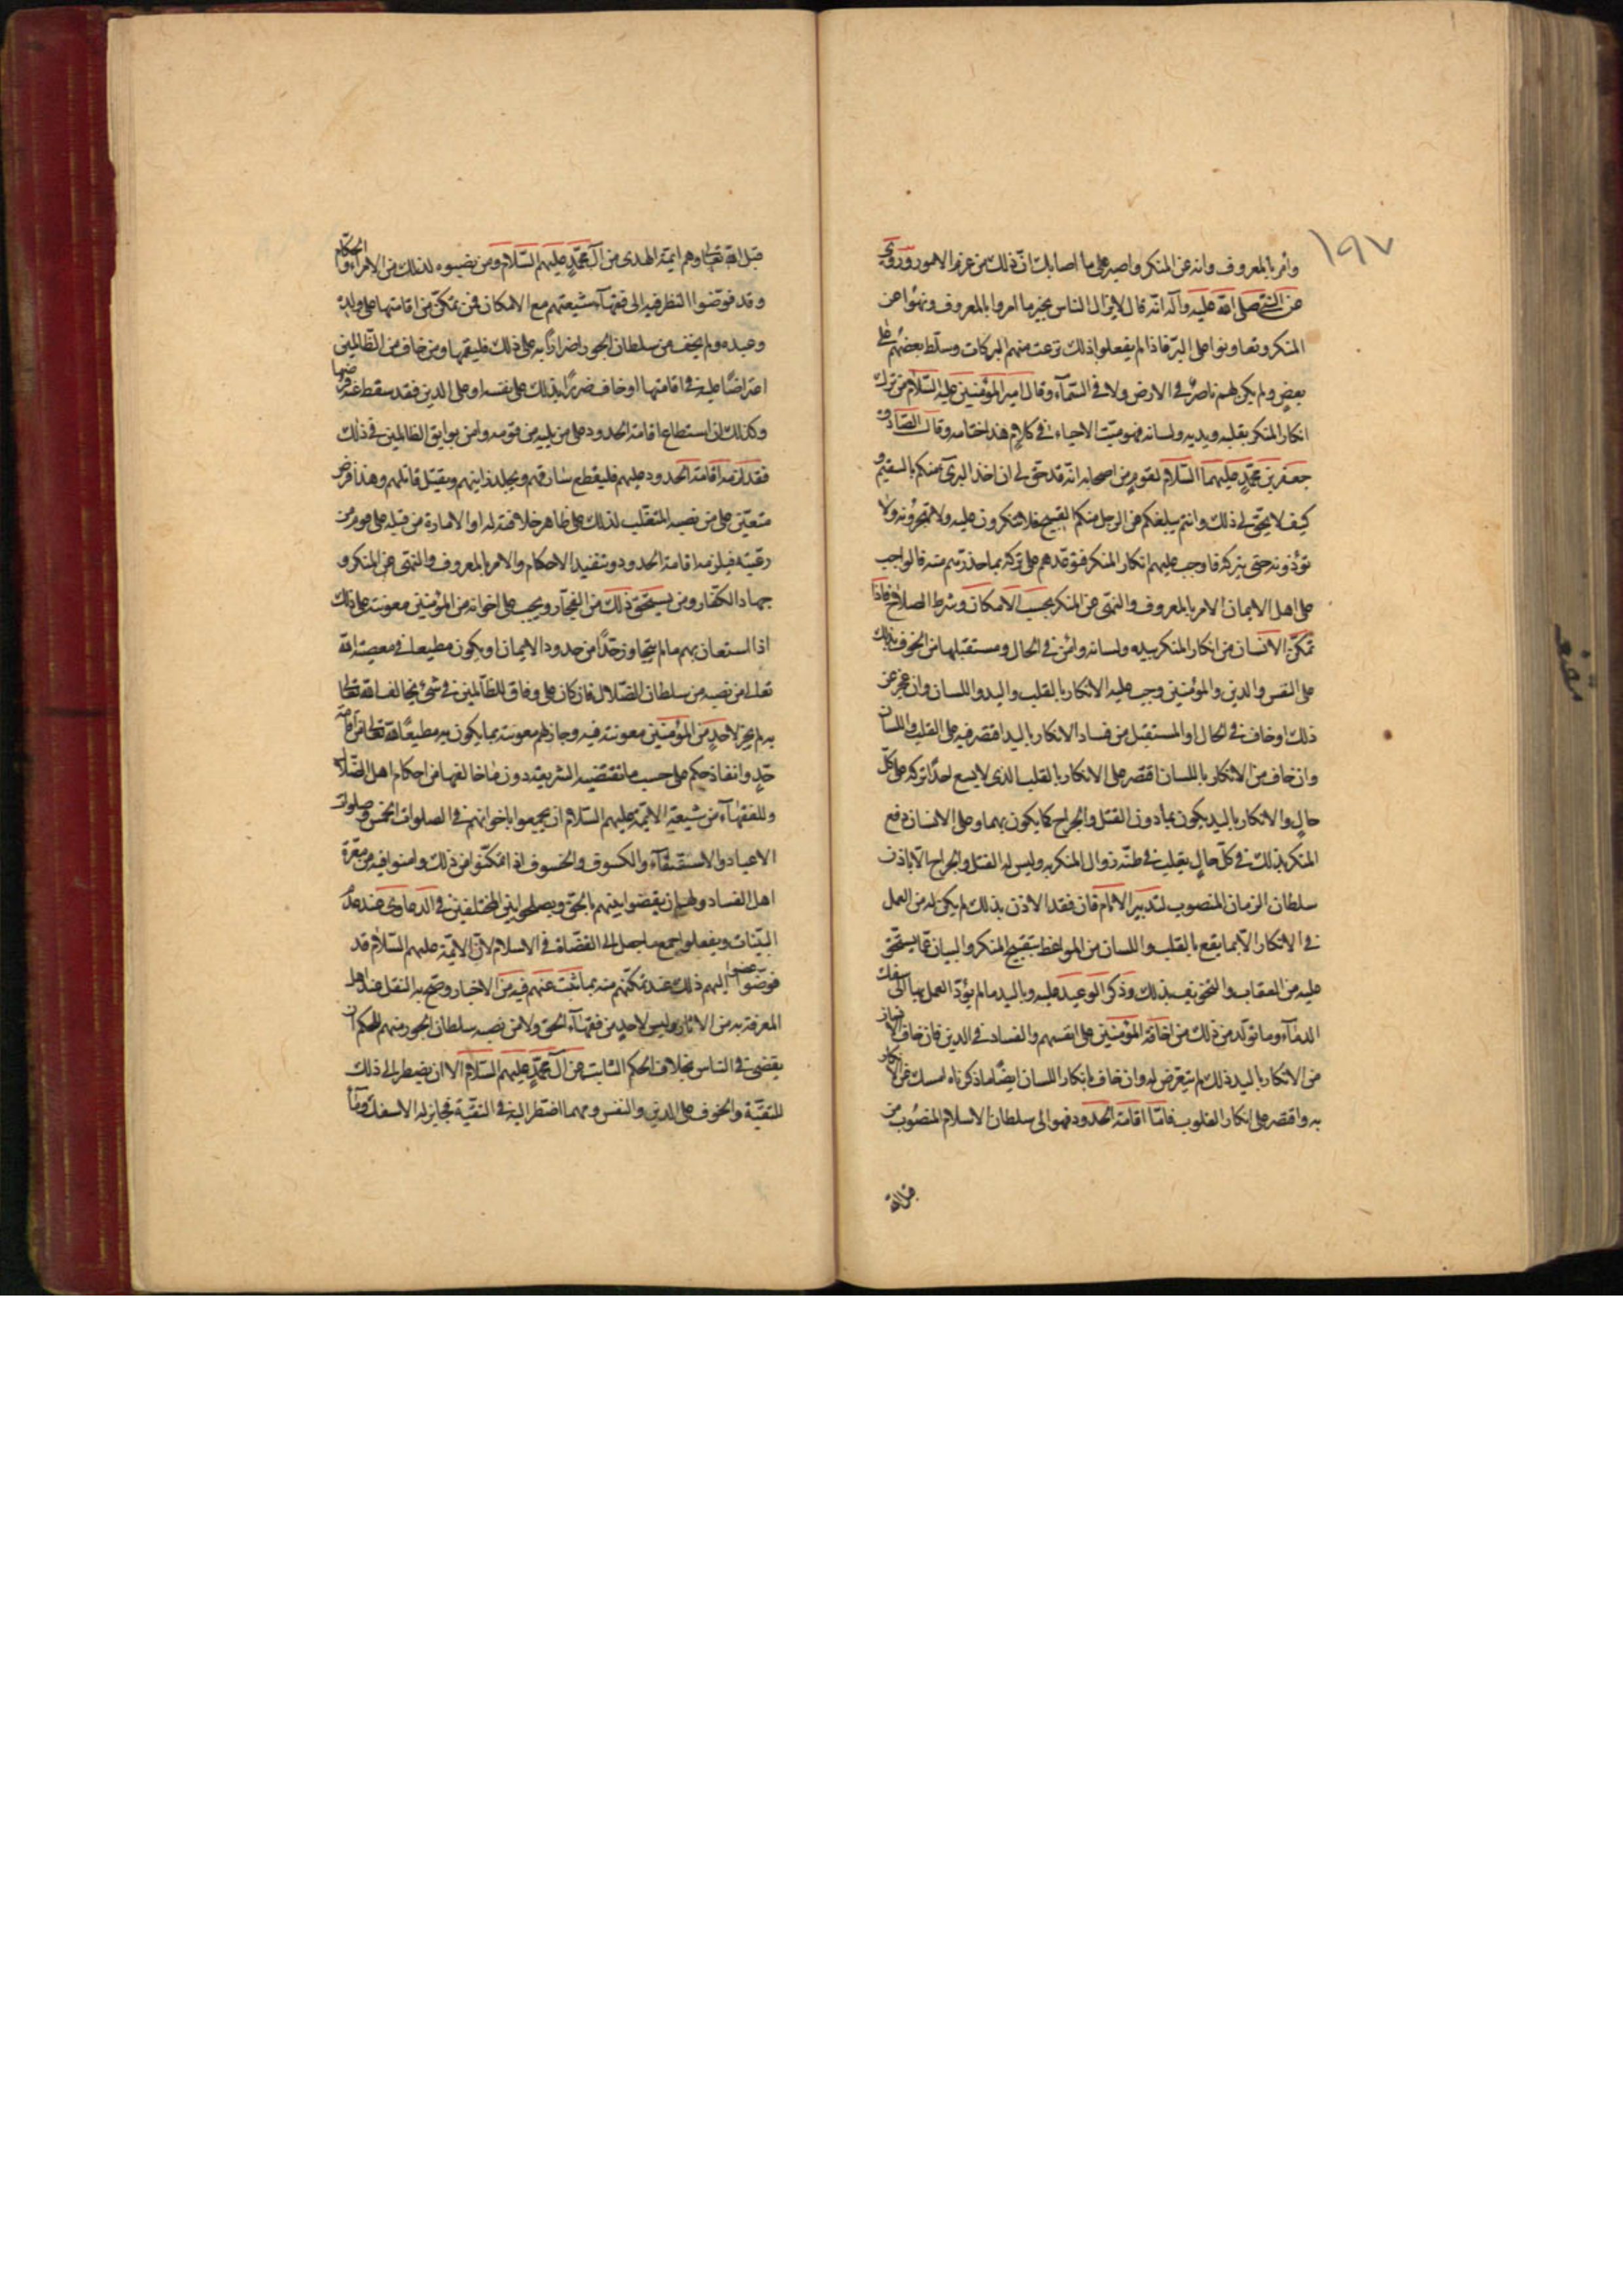 ١٩٧
وأمر بالمعروف وانه عن المنكر واصبر على ما اصابك انّ ذلك من عزم الامور وروى
عن النبي صلى الله عليه وآله انّه قال لا يزال الناس بخير ما امروا بالمعروف ونهوا عن
المنكر وتعاونوا على البرّ فاذا لم يفعلوا ذلك نزعت منهم البركات وسلّط بعضهم على
بعضٍ ولم يكن لهم ناصرٌ في الارض ولا في السّمآء وقال امير المؤمنين عليه السّلام من ترك
انكار المنكر بقلبه ويديه ولسانه فهو ميّت الاحياء في كلامٍ هذا ختامه وقال الصّادق
جعفر بن محمّدٍ عليهما السّلام لقومٍ من اصحابه انّه قد حقّ لي ان اخذ البرىّ منكم بالسقيم و
كيف لا يحقّ لي ذلك وانتم يبلغكم عن الرجل منكم القبيح فلا تنكرون عليه ولا تهجرونه ولا
تؤذونه حتى يتركه فاوجب عليهم انكار المنكر فتوعّدهم على تركه بما حذّرهم منه فالواجب
على اهل الايمان الامر بالمعروف والنهى عن المنكر بحسب الامكان وشرط الصلاح فاذا
تمكّن الانسان من انكار المنكر بيده ولسانه وامن في الحال ومستقبلها من الخوف بذلك
على النفس والدين والمؤمنين وجب عليه الانكار بالقلب واليد واللسان وان عجز عن
ذلك او خاف في الحال او المستقبل من فساد الانكار باليد اقتصر فيه على القلب واللسان
وان خاف من الانكار باللسان اقتصر على الانكار بالقلب الذى لا يسع احدًا تركه على كلّ
حالٍ والانكار باليد يكون بما دون القتل والجراح كما يكون بهما وعلى الانسان دفع
المنكر بذلك في كلّ حالٍ يغلب في ظنّه زوال المنكر به وليس له القتل والجراح الّا باذن
سلطان الزمان المنصوب لتدبير الانام فان فقد الاذن بذلك لم يكن له من العمل
في الانكار الّا بما يقع بالقلب واللسان من المواعظ بتقبيح المنكر والبيان عمّا يستحق
عليه من العقاب والتخويف بذلك وذكر الوعيد عليه وباليد ما لم يؤدّ العمل بها الى سفك
الدمآء وما تولّد من ذلك من اخافة المؤمنين على انفسهم والفساد في الدين فان خاف الانسان
من الانكار باليد ذلك لم يتعرض له وان خاف بانكار اللسان ايضًا ما ذكرناه امسك عن الانكار
به واقتصر على انكار القلوب فامّا اقامة الحدود فهو الى سلطان الاسلام المنصوب من
قبل الله
قبل الله تعالى وهم ائمة الهدى من آل محمّدٍ عليهم السّلام ومن نصبوه لذلك من الامراء والحكّام
وقد فوّضوا النظر فيه الى فقهآء شيعتهم مع الامكان فمن تمكّن من اقامتها على ولده
وعبده ولم يخف من سلطان الجور اضرارًا به على ذلك فليقمها ومن خاف من الظّالمين
اعتراضًا عليه في اقامتها او خاف ضررًا بذلك على نفسه او على الدين فقد سقط عنه فرضها
وكذلك ان استطاع اقامة الحدود على من يليه من قومه وامن بوايق الظالمين في ذلك
فقد لزمه اقامة الحدود عليهم فليقطع سارقهم ويجلد زانيهم ويقتل قاتلهم وهذا فرض
متعيّن على من نصبه المتغلب لذلك على ظاهر خلافته له او الامارة من قبله على قوم من
رعيّته فيلزمه اقامة الحدود وتنفيذ الاحكام والامر بالمعروف والنهى عن المنكر و
جهاد الكفّار ومن يستحق ذلك من الفجّار ويجب على اخوانه من المؤمنين معونته على ذلك
اذا استعان بهم ما لم يتجاوز حدًّا من حدود الايمان او يكون مطيعا في معصية الله
تعالى من نصبه من سلطان الضّلال فان كان على وفاق للظّالمين في شئ يخالف الله تعالى
به لم يجز لاحدٍ من المؤمنين معونته فيه وجاز لهم معونته بما يكون به مطيعًا لله تعالى من اقامة
حدٍّ وانفاذ حكم على حسب ما تقتضيه الشريعة دون ما خالفها من احكام اهل الضّلال
وللفقهآء من شيعة الائمة عليهم السّلام ان يجمعوا باخوانهم في الصلوات الخمس وصلوات
الاعياد والاستسقآء والكسوف والخسوف اذا تمكّنوا من ذلك وامنوا فيه من معرّة
اهل الفساد ولهم ان يقضوا بينهم بالحق ويصلحوا بين المختلفين في الدعاوى عند عدم
البيّنات ويفعلوا جميع ما جعل الى القضاة في الاسلام لانّ الائمّة عليهم السّلام قد
فوّضوا اليهم ذلك عند تمكّنهم منه بما ثبت عنهم فيه من الاخبار وصحّ به النقل عند اهل
المعرفة به من الاثار وليس لاحدٍ من فقهآء الحق ولا من نصبه سلطان الجور منهم للحكم ان
يقضى في الناس بخلاف الحكم الثابت عن آل محمّدٍ عليهم السّلام الا ان يضطر الى ذلك
للتقيّة والخوف على الدين والنفس ومهما اضطر اليه في التقيّة فجايز له الا سفك دمآء